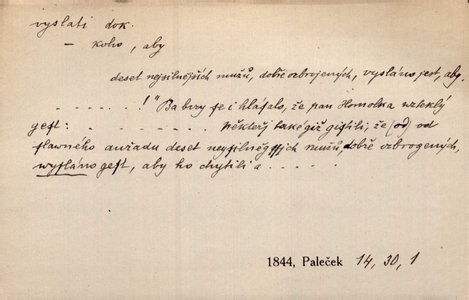 vyslati dok.
– koho, aby
deset nejsilnějších mužů, dobře ozbrojených, vysláno jest, aby
. - . . . . . !" Ba brzy se i hlásalo, že pan Homolka wzteklý
gest: . - . . . . . . . někteří také giž gistili, že (od) od
slawného auřadu deset neysilněgssjch mužů, dobře ozbrogených,
wysláno gest, aby ho chytili a . . . . .
1844, Paleček 14, 30, 1